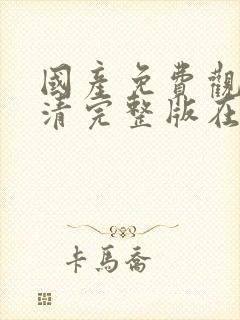 國產免費觀
清完整版在
卡馬喬